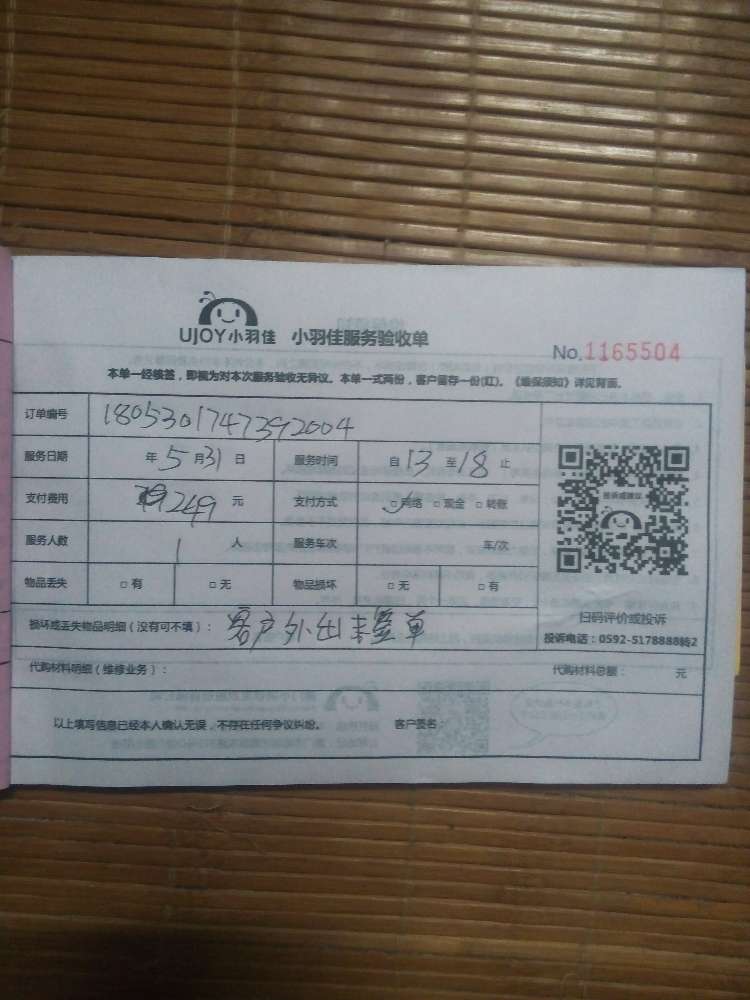 UJOY小羽佳 小羽佳服务验收单
No.1165504
本单一经核签，即视为对本次服务验收无异议。本单一式两份，客户留存一份(红)。《维保须知》详见背面。
订单编号 1805301747392004
服务日期 年 5 月 31 日 服务时间 自 13 至 18 止
支付费用 249 元 支付方式 ☑网络 □现金 □转账
服务人数 1 人 服务车次 车/次
物品丢失 □有 □无 物品损坏 □无 □有
扫码评价或投诉
损坏或丢失物品明细（没有可不填）： 客户外出未签单
投诉电话：0592-5178888转2
代购材料明细（维修业务）： 代购材料总额： 元
以上填写信息已经本人确认无误，不存在任何争议纠纷。 客户签名：